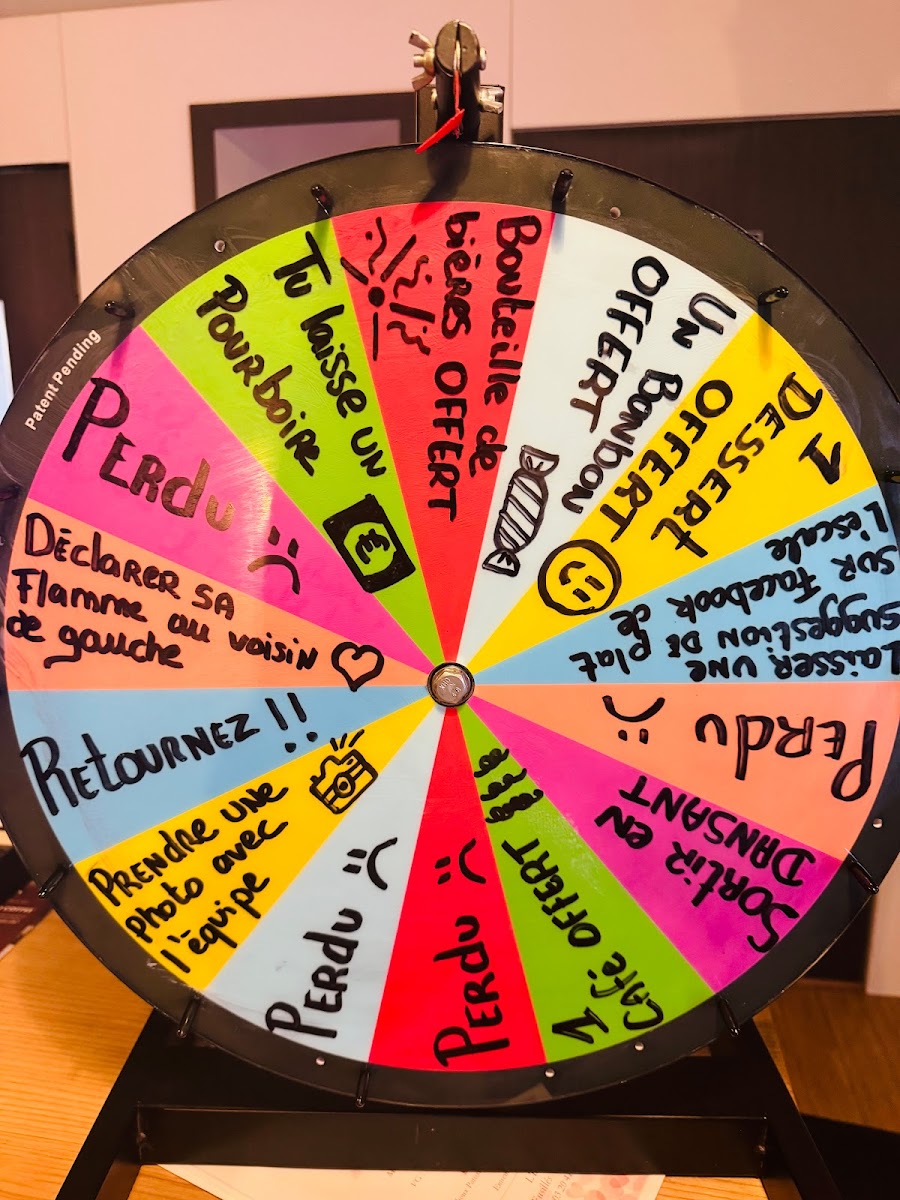 Patent Pending
Bouteille de
bières OFFERT
Un Bonbon
OFFERT
1
DESSERT
OFFERT
Laisser une
suggestion de plat
sur Facebook de
L'escale
Perdu
Sortir en
DANSANT
1 Café OFFERT
Perdu
Perdu
Prendre une
photo avec
l'équipe
Retournez !!
Déclarer sa
Flamme au voisin
de gauche
Perdu
Tu laisse un
Pourboire